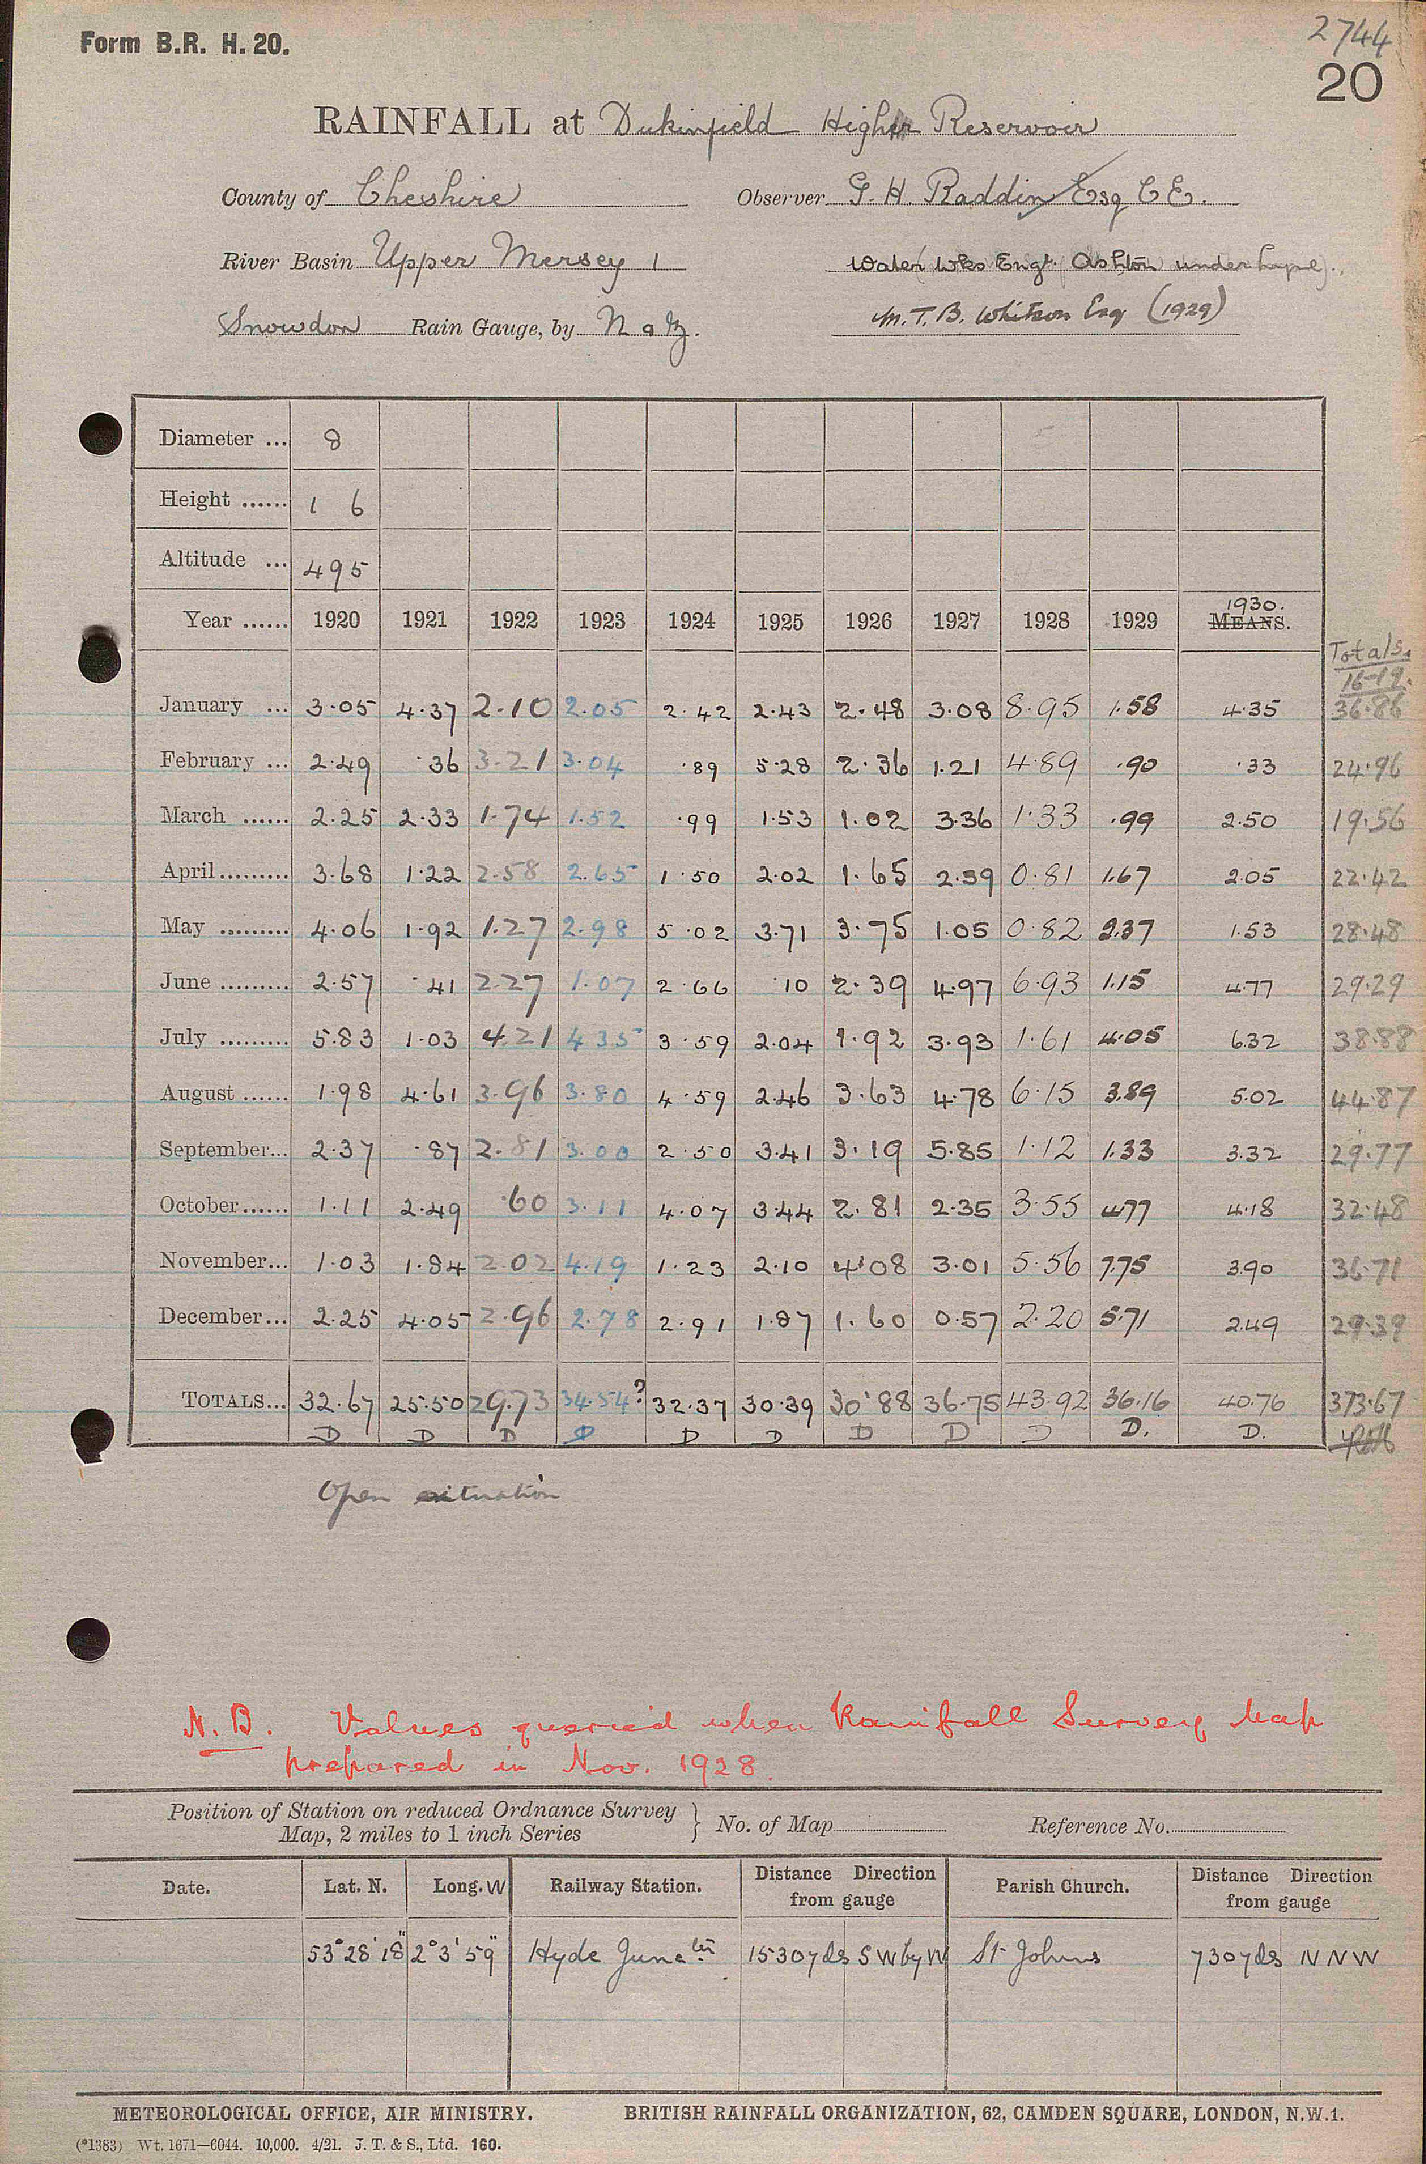 Form B.R. H. 20.
2744
20
RAINFALL at Dukinfield Higher Reservoir
County of Cheshire Observer G. H. Raddin Esq CE.
River Basin Upper Mersey 1 Water Wks Engr. Ashton under Lyne).
Snowdon Rain Gauge, by N & Z. M. T. B. Whitson Esq (1929)
Diameter ... 8
Height ...... 1 6
Altitude ... 495
Year ...... 1920 1921 1922 1923 1924 1925 1926 1927 1928 1929 1930. MEANS. Totals.
16-19.
January ... 3.05 4.37 2.10 2.05 2.42 2.43 2.48 3.08 8.95 1.58 4.35 36.86
February ... 2.49 .36 3.21 3.04 .89 5.28 2.36 1.21 4.89 .90 .33 24.96
March ...... 2.25 2.33 1.74 1.52 .99 1.53 1.02 3.36 1.33 .99 2.50 19.56
April ......... 3.68 1.22 2.58 2.65 1.50 2.02 1.65 2.59 0.81 1.67 2.05 22.42
May ......... 4.06 1.92 1.27 2.98 5.02 3.71 3.75 1.05 0.82 2.37 1.53 28.48
June ......... 2.57 .41 2.27 1.07 2.66 .10 2.39 4.97 6.93 1.15 4.77 29.29
July ......... 5.83 1.03 4.21 4.35 3.59 2.04 1.92 3.93 1.61 4.05 6.32 38.88
August ...... 1.98 4.61 3.96 3.80 4.59 2.46 3.63 4.78 6.15 3.89 5.02 44.87
September... 2.37 .87 2.81 3.00 2.50 3.41 3.19 5.85 1.12 1.33 3.32 29.77
October...... 1.11 2.49 .60 3.11 4.07 3.44 2.81 2.35 3.55 4.77 4.18 32.48
November... 1.03 1.84 2.02 4.19 1.23 2.10 4.08 3.01 5.56 7.75 3.90 36.71
December... 2.25 4.05 2.96 2.78 2.91 1.87 1.60 0.57 2.20 5.71 2.49 29.39
TOTALS... 32.67 25.50 29.73 34.54? 32.37 30.39 30.88 36.75 43.92 36.16 40.76 373.67
D D D D D D D D D D. D.
Open situation
N.B. Values queried when Rainfall Survey Map
prepared in Nov. 1928.
Position of Station on reduced Ordnance Survey
Map, 2 miles to 1 inch Series } No. of Map Reference No.
Date. Lat. N. Long. W Railway Station. Distance Direction from gauge Parish Church. Distance Direction from gauge
53° 28' 18" 2° 3' 59" Hyde Junctn 1530 yds SW by W St Johns 730 yds NNW
METEOROLOGICAL OFFICE, AIR MINISTRY. BRITISH RAINFALL ORGANIZATION, 62, CAMDEN SQUARE, LONDON, N.W.1.
(*1383) Wt. 1671—6044. 10,000. 4/21. J. T. & S., Ltd. 160.